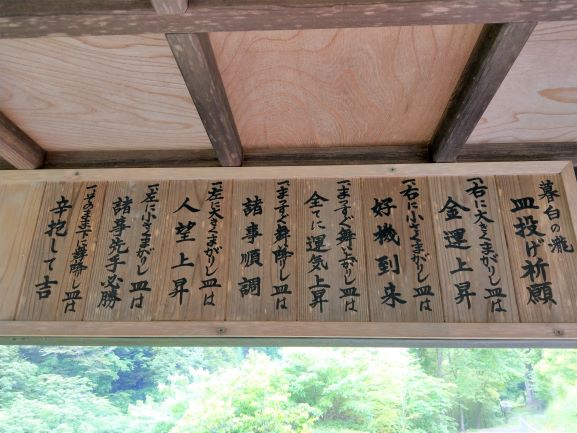 暮白の滝
皿投げ祈願
一、右に大きくまがりし皿は
金運上昇
一、右に小さくまがりし皿は
好機到来
一、まっすぐ舞上がりし皿は
全てに運気上昇
一、まっすぐ舞降りし皿は
諸事順調
一、左に大きくまがりし皿は
人望上昇
一、左に小さくまがりし皿は
諸事先手必勝
一、そのまま下に舞降りし皿は
辛抱して吉